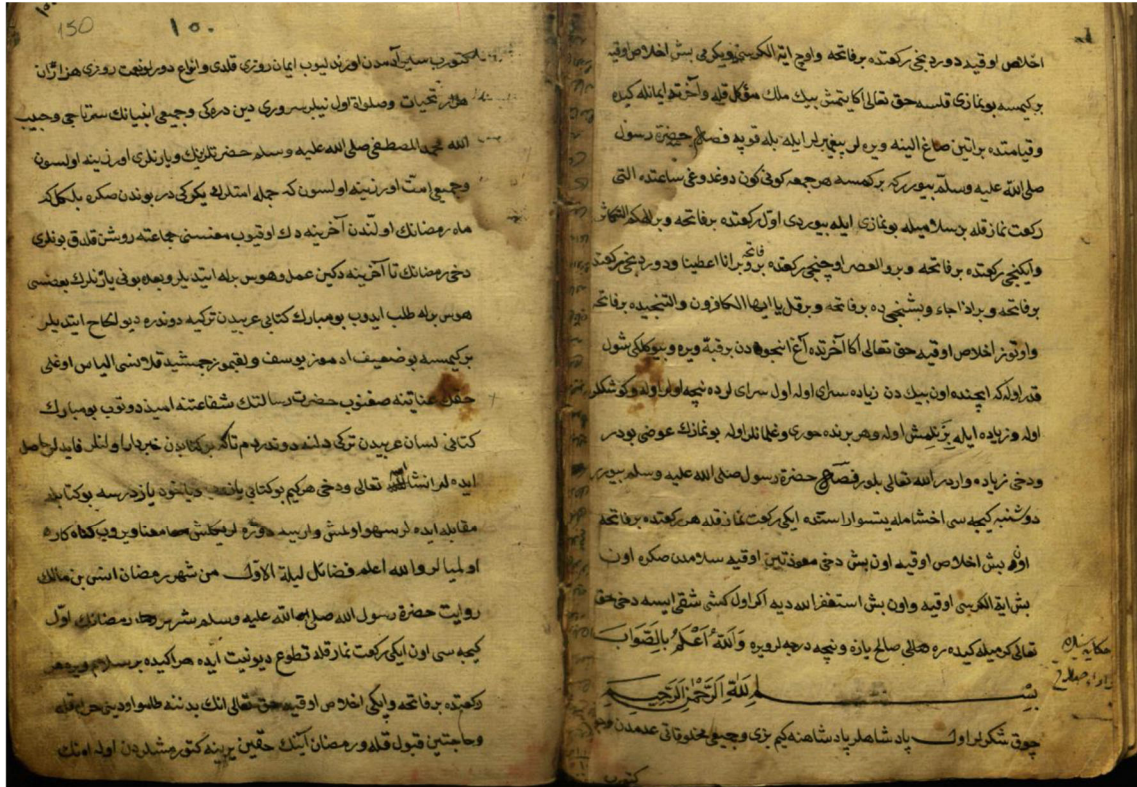 اخلاص اوقيه دوردنجی ركعتده بر فاتحه واوچ ایة الكرسی ويكرمی بش اخلاص اوقيه
بركيمسه بو نمازی قلسه حق تعالی اكا يتمش بيك ملك مؤكل قله وآخرته ايمانله كيده
وقيامتده براتين صاغ الينه ويره لر پيغمبرلر ايله بله قوپه فصل حضرة رسول
صلی الله عليه وسلم بيورركه بركمسه هر جمعه كونی كون دوغدوغی ساعتده التی
ركعت نماز قله بر سلامیله بو نمازی ايله بيوردی اول ركعتده بر فاتحه وبر الهكم التكاثر
وايكنجی ركعتده بر فاتحه وبر والعصر اوچنجی ركعتده بر فاتحه وبر انا اعطينا ودوردنجی ركعتده
بر فاتحه وبر اذا جاء وبشنجی ده بر فاتحه وبر قل يا ايها الكافرون والتنجيده بر فاتحه
واوتوز اخلاص اوقيه حق تعالی اكا آخرتده آغ انجودن بر قبة ويره وبيوكلكی شول
قدر اوله كه ايچنده اون بيك دن زياده سرای اوله اول سرای لرده نيچه اولر اوله وكوشكلر
اوله وزياده ايله بزنلمش اوله وهر برنده حوری وغلمانلر اوله بو نمازك عوضی بودر
ودخی زياده واردر الله تعالی بلور فصل حضرة رسول صلی الله عليه وسلم بيورر
دوشنبه كيجه سی اخشامله يتسو اراستنده ايكی ركعت نماز قله هر ركعتده بر فاتحه
اون بش اخلاص اوقيه اون بش دخی معوذتين اوقيه سلامدن صكره اون
بش ایة الكرسی اوقيه واون بش استغفر الله ديه اكر اول كشی شقی ايسه دخی حق
تعالی كرميله كيدره صالح يازه ونيچه درجه لر ويره والله اعلم بالصواب
بسم الله الرحمن الرحيم
چوق شكرلر اول پادشاهلر پادشاهنه كيم بزی وجميع مخلوقاتی عدمدن وجوده
كتورب
حكايه
150
١٥٠
كتورب آدمدن اوزنديوب ايمان روزی قلدی وانواع دورلو نعمت روزی هزاران
هزار تحيات وصلوة اول نبيلر سروری دين دره كی وجميع انبيانك سرتاجی وحبيب
الله محمد المصطفی صلی الله عليه وسلم حضرتلرينك ويارنلری اوزرينه اولسون
وجميع امت اوزرينه اولسون كه جمله امتلرك يكركی در بوندن صكره بلكل كه
ماه رمضانك اولندن آخرينه دك اوقيوب معنسنی جماعته روشن قلدق بونلری
دخی رمضانك تا آخرينه دكين عمل وهوس بله ايتديلر وبعده بونی يارنلرك بعضسی
هوس برله طلب ايدوب بو مبارك كتابی عربيدن تركيه دوندره ديو الحاح ايتديلر
بركيمسه بو ضعيف يوسف جمشيد الياس اوغلی
حقك عنايتنه صغنوب حضرت رسالتك شفاعتنه اميذ دوتوب بو مبارك
كتابی لسان عربيدن تركی دلنه دوندردم تاكه بو كتابدن خبردار اولنلر فايدلر حاصل
ايده لر انشاء الله تعالی ودخی هركيم بو كتابی يازدرسه بو كتابله
مقابله ايده لر سهو اولمش وار ايسه دوزه لر معنا ويروب كناه كاره
اولميالر والله اعلم فضائل ليلة الاول من شهر رمضان انس بن مالك
روايت حضرة رسول الله صلی الله عليه وسلم شهر رمضانك اول
كيجه سی اون ايكی ركعت نماز قله تطوع ديو نيت ايده هر اكيده بر سلام ويره هر
ركعتده بر فاتحه وايكی اخلاص اوقيه حق تعالی انك بدننه حرام قله
وحاجتين قبول قله ورمضان آينك حقين يرينه كتورمشلردن اوله امتك